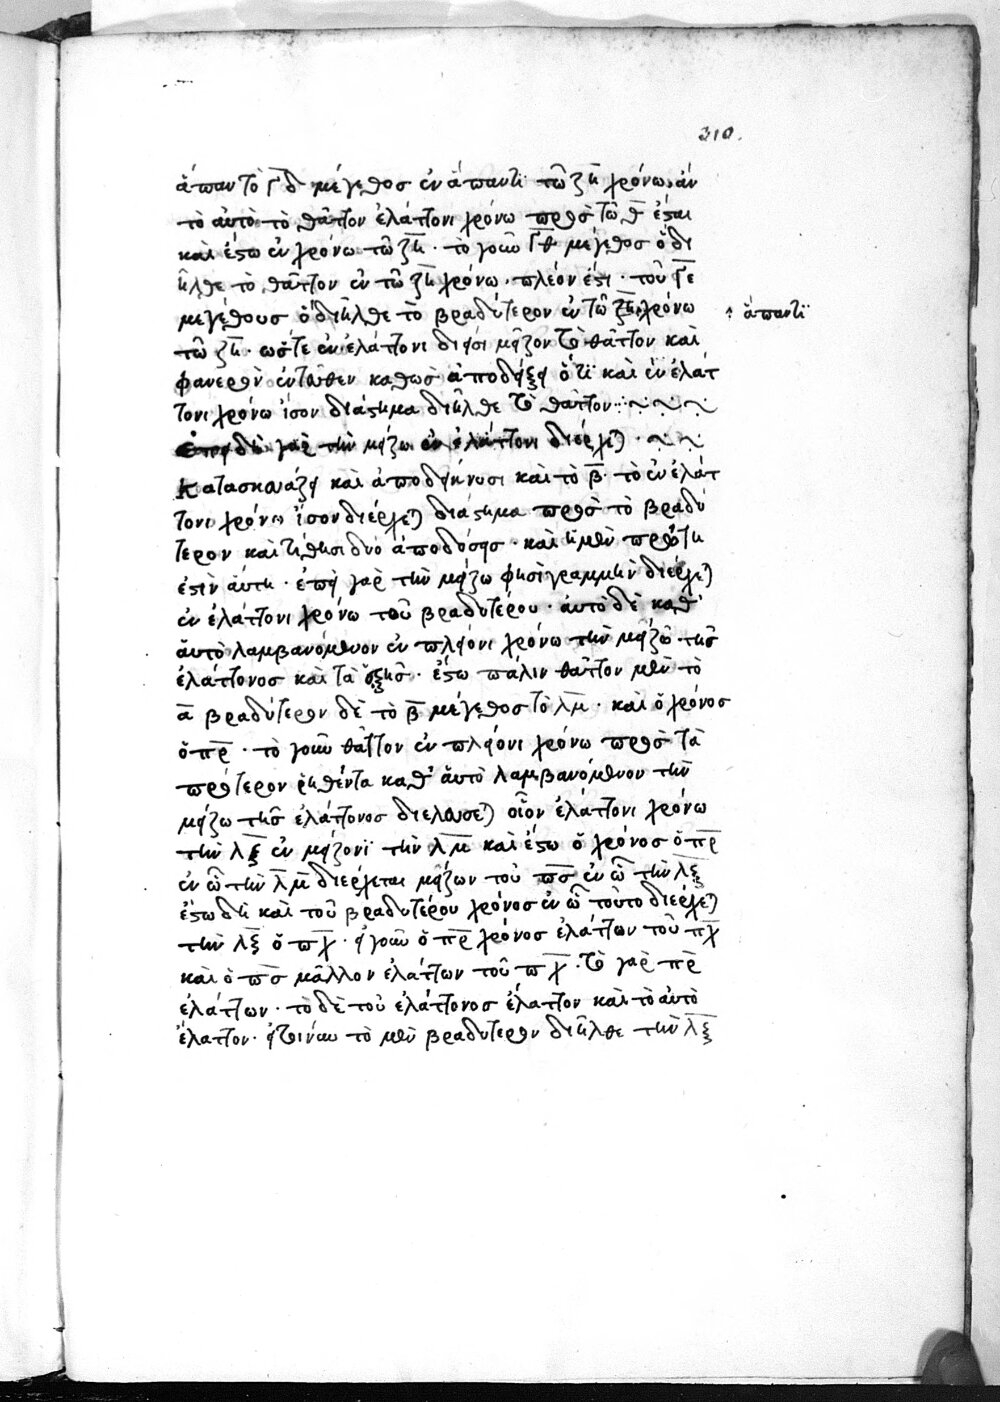 310.
ἅπαν τὸ γδ μέγεθος ἐν ἅπαντι τῶ ζη χρόνω, ἀν
τὸ αὐτὸ τὸ θᾶττον ἐλάττονι χρόνω πρὸς τῶ θ ἔσται
καὶ ἔστω ἐν χρόνω τῶ ζη · τὸ γοῦν γθ μέγεθος ὃ δι
ῆλθε τὸ θᾶττον ἐν τῶ ζη χρόνω · πλέον ἐστι · τοῦ γε
μεγέθους ὃ διῆλθε τὸ βραδύτερον ἐν τῶ ζη χρόνω
ἅπαντι
τῶ ζη · ὥστε ἐν ἐλάττονι δίεισι μεῖζον τὸ θᾶττον καὶ
φανερὸν ἐντεῦθεν καθὼς ἀποδείξει ὅτι καὶ ἐν ἐλάτ
τονι χρόνω ἴσον διάστημα διῆλθε τὸ θᾶττον
ἐπειδὴ γὰρ τὴν μείζω ἐν ἐλάττονι διέρχεται ·
Κατασκευάζει καὶ ἀποδείκνυσι καὶ τὸ β · τὸ ἐν ἐλάτ
τονι χρόνω ἴσον διέρχεται διάστημα πρὸς τὸ βραδύ
τερον καὶ τίθησι δύο ἀποδόσεις · καὶ ἡ μὲν πρώτη
ἐστὶν αὕτη · ἐπεὶ γὰρ τὴν μείζω φησὶ γραμμὴν διέρχεται
ἐν ἐλάττονι χρόνω τοῦ βραδυτέρου · αὐτὸ δὲ καθ'
αὑτὸ λαμβανόμενον ἐν πλείονι χρόνω τὴν μείζω τῆς
ἐλάττονος καὶ τὰ ἑξῆς · ἔστω πάλιν θᾶττον μὲν τὸ
α βραδύτερον δὲ τὸ β μέγεθος τὸ λμ · καὶ ὁ χρόνος
ὁ πρ · τὸ γοῦν θᾶττον ἐν πλείονι χρόνω πρὸς τὰ
πρότερον ῥηθέντα καθ' αὑτὸ λαμβανόμενον τὴν
μείζω τῆς ἐλάττονος διελεύσεται οἷον ἐλάττονι χρόνω
τὴν λξ ἐν μείζονι τὴν λμ καὶ ἔστω ὁ χρόνος ὁ πρ
ἐν ὧ τὴν λμ διέρχεται μείζων τοῦ πσ ἐν ὧ τὴν λξ
ἔστω δὴ καὶ τοῦ βραδυτέρου χρόνος ἐν ὧ τοῦτο διέρχεται
τὴν λξ ὁ πχ · εἰ γοῦν ὁ πρ χρόνος ἐλάττων τοῦ πχ
καὶ ὁ πσ μᾶλλον ἐλάττων τοῦ πχ · τὸ γὰρ πρ
ἐλάττων · τὸ δὲ τοῦ ἐλάττονος ἔλαττον καὶ τὸ αὐτὸ
ἔλαττον · τὸ μὲν βραδύτερον διῆλθε τὴν λξ